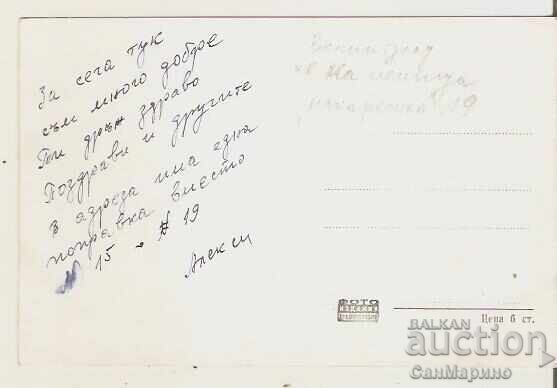 За сега тук
съм много добре
Ти дръж здраво
Поздрави и другите
в адреса има една
поправка вместо
№ 15 - № 19
Алекси
на
19
ФОТО
Цена 6 ст.
BALKAN
auction
СанМарино